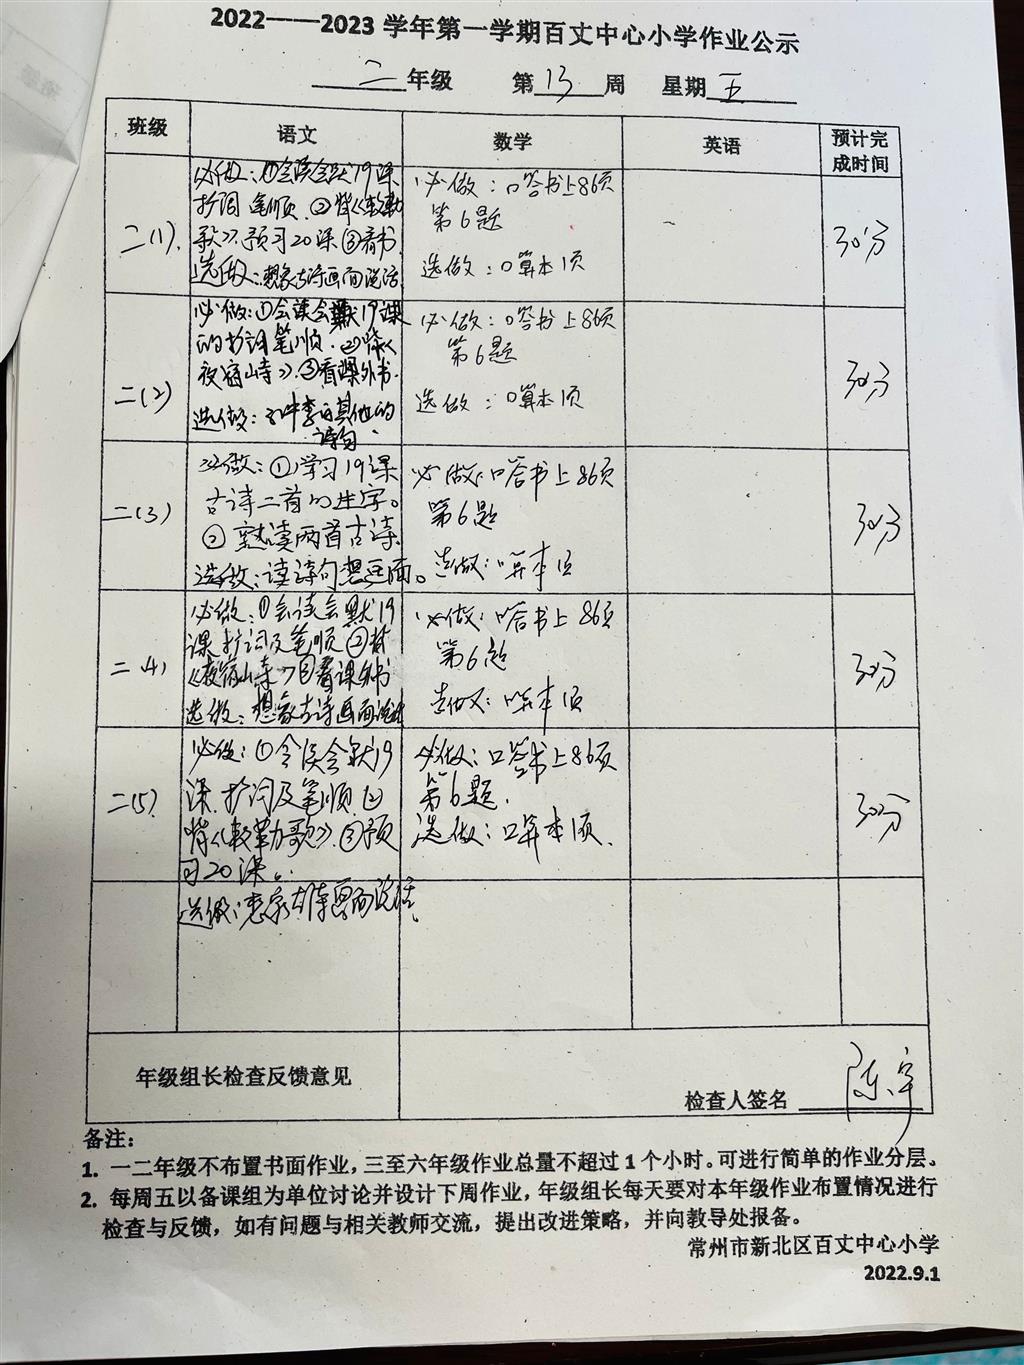 2022——2023学年第一学期百丈中心小学作业公示
二年级 第13周 星期五
班级 语文 数学 英语 预计完成时间
二(1).
必做:①会读会默19课
扩词 笔顺.②背《敕勒
歌》.预习20课③看书
选做:想象古诗画面说话
必做:口答书上86页
第6题
选做:口算本1页
30分
二(2)
必做:①会读会默19课
的扩词笔顺.②背《
夜宿山寺》.③看课外书.
选做:李白其他的
诗句.
必做:口答书上86页
第6题
选做:口算本1页
30分
二(3)
必做:①学习19课
古诗二首的生字。
②熟读两首古诗.
选做:读诗句想画面。
必做:口答书上86页
第6题
选做:口算本1页
30分
二(4)
必做:①会读会默19
课扩词及笔顺②背
《夜宿山寺》③看课外书
选做:想象古诗画面说话
必做:口答书上86页
第6题
选做:口算本1页
30分
二(5)
必做:①会读会默19
课.扩词及笔顺②
背《敕勒歌》.③预
习20课.
选做:想象古诗画面说话.
必做:口答书上86页
第6题.
选做:口算本1页.
30分
年级组长检查反馈意见
检查人签名 陈宇
备注:
1. 一二年级不布置书面作业,三至六年级作业总量不超过1个小时。可进行简单的作业分层。
2. 每周五以备课组为单位讨论并设计下周作业,年级组长每天要对本年级作业布置情况进行
检查与反馈,如有问题与相关教师交流,提出改进策略,并向教导处报备。
常州市新北区百丈中心小学
2022.9.1